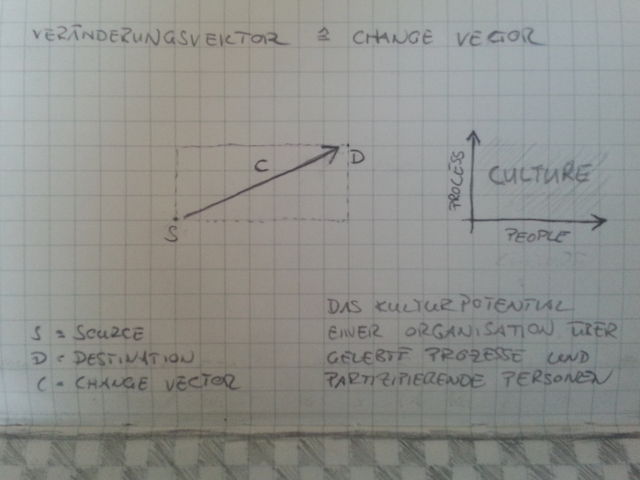 VERÄNDERUNGSVEKTOR ≙ CHANGE VECTOR
C
D
S
PROCESS
CULTURE
PEOPLE
S = SOURCE
D = DESTINATION
C = CHANGE VECTOR
DAS KULTURPOTENTIAL
EINER ORGANISATION ÜBER
GELEBTE PROZESSE UND
PARTIZIPIERENDE PERSONEN